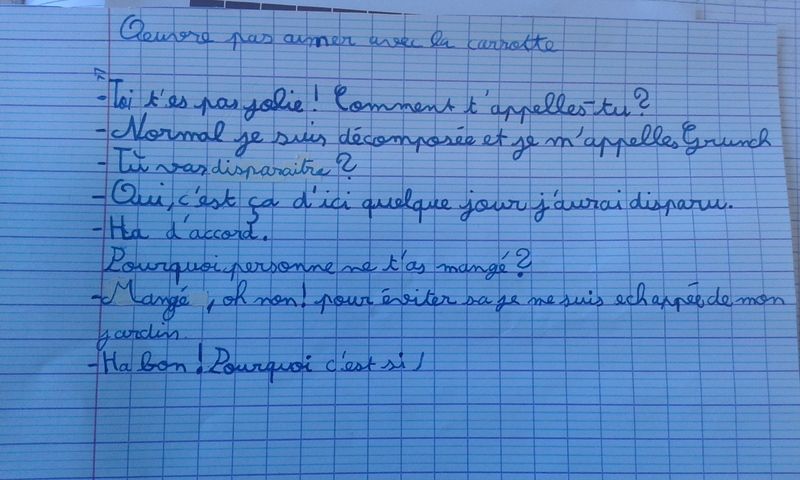 Oeuvre pas aimer avec la carrotte
-Toi t'es pas jolie! Comment t'appelles-tu?
-Normal je suis décomposée et je m'appelles Grunch
-Tu vas disparaitre?
-Oui, c'est ça d'ici quelque jour j'aurai disparu.
-Ha d'accord.
Pourquoi personne ne t'as mangé?
-Mangé, oh non! pour éviter sa je me suis echappée de mon
jardin.
-Ha bon! Pourquoi c'est si